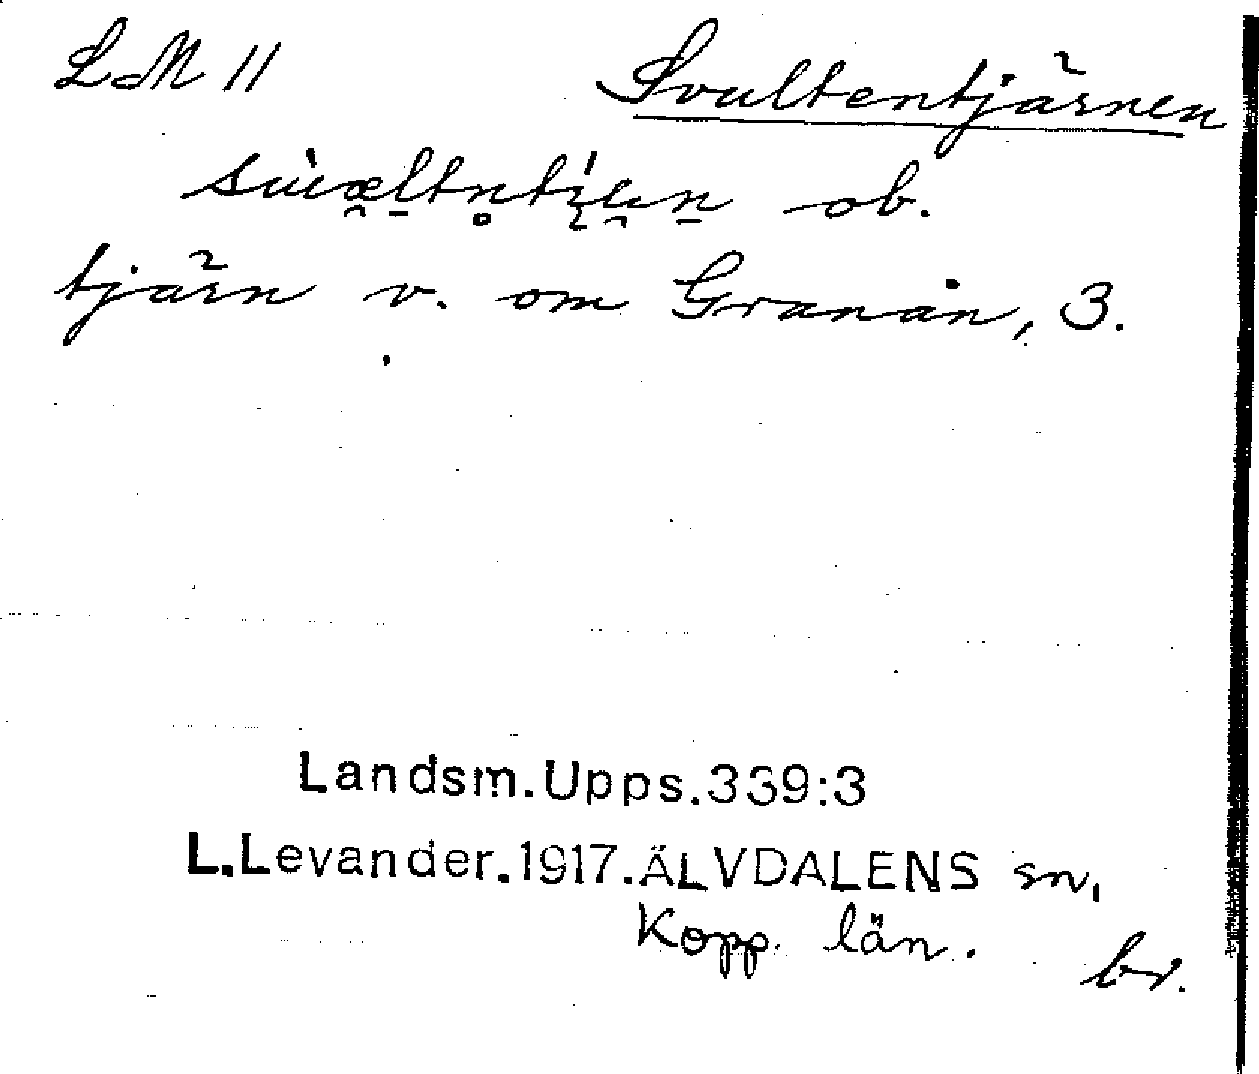 LM 11 Svultentjärnen
ob.
tjärn v. om Granån, 3.
Landsm.Upps.339:3
L.Levander.1917.ÄLVDALENS sn,
Kopp. län.
br.